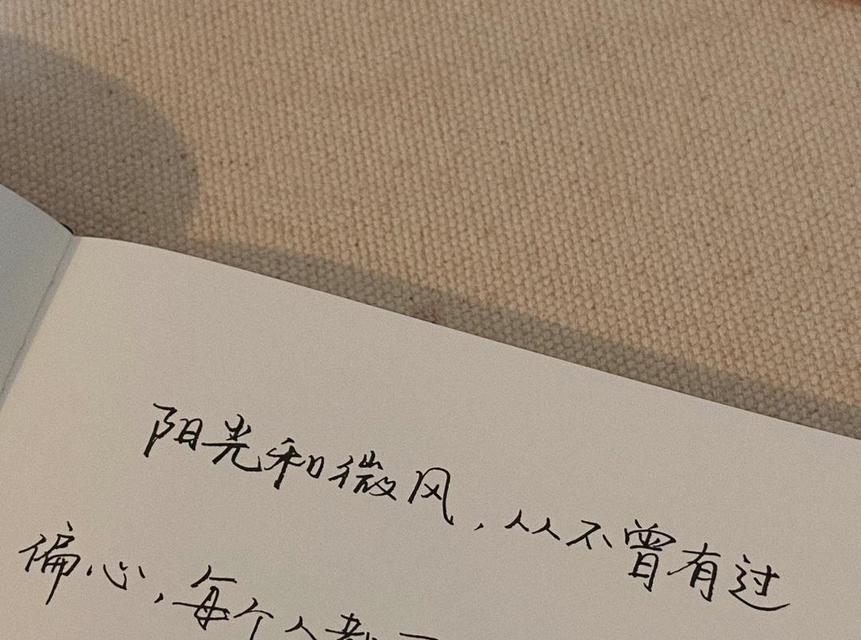 阳光和微风，从不曾有过
偏心，每个人都